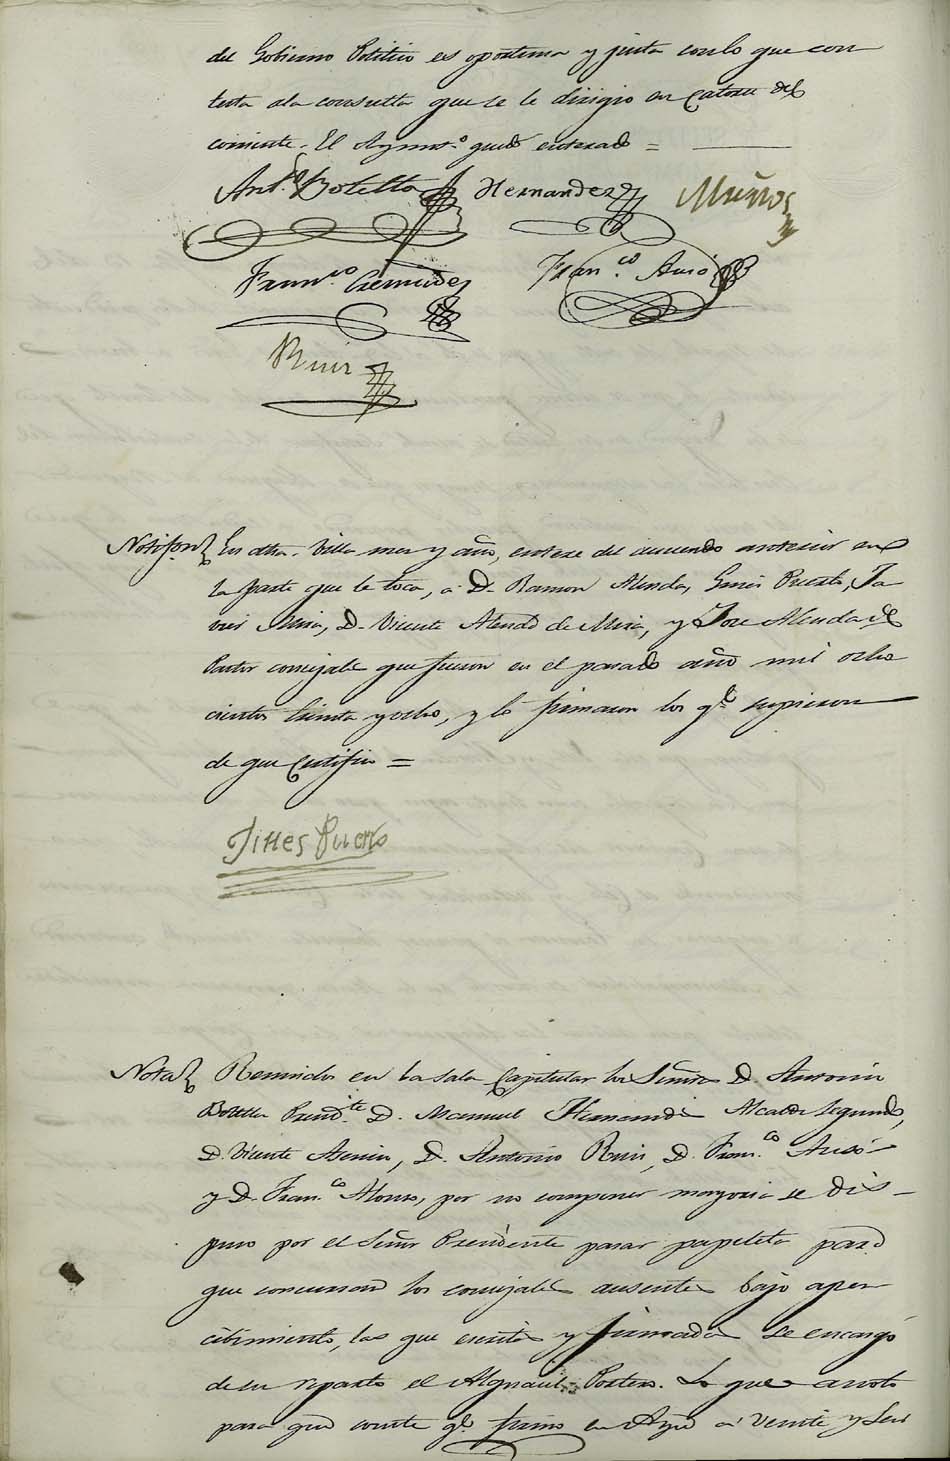 del Gobierno Politico es oportuna y justa con lo que con
testa ala consulta que se le dirigio en Catorce del
corriente. El Ayunt.º quedó enterado =
Ant.º Botella Hernandez Muños
Fran.co Cremades Fran.co Aucó
Ruir
Notifon En dha. Villa mes y año, entere del acuerdo anterior en
la parte que le toca, a D. Ramon Alenda, Ginés Puerto, Ja
vier Mira, D. Vicente Alendo de Mira, y Jose Alenda de
Pastor consejales que fueron en el pasado año mil ocho
cientos treinta y ocho, y lo firmaron los q.e supieron
de que Certifico =
Jines Puerto
Nota Reunidos en la sala Capitular los Señores D. Antonio
Botella Presid.te D. Manuel Hernandes Alcalde segundo,
D. Vicente D. Antonio Ruis, D. Fran.co Aucó
y D. Fran.co Alonso, por no componer mayoria se dis-
puso por el Señor Presidente pasar papeleta para
que concurran los consejales ausentes bajo aper
cibimiento, las que escritas y firmadas se encargó
de su reparto el Alguacil Portero. Lo que anoto
para que conste q.e firmo en Aspe a veinte y seis